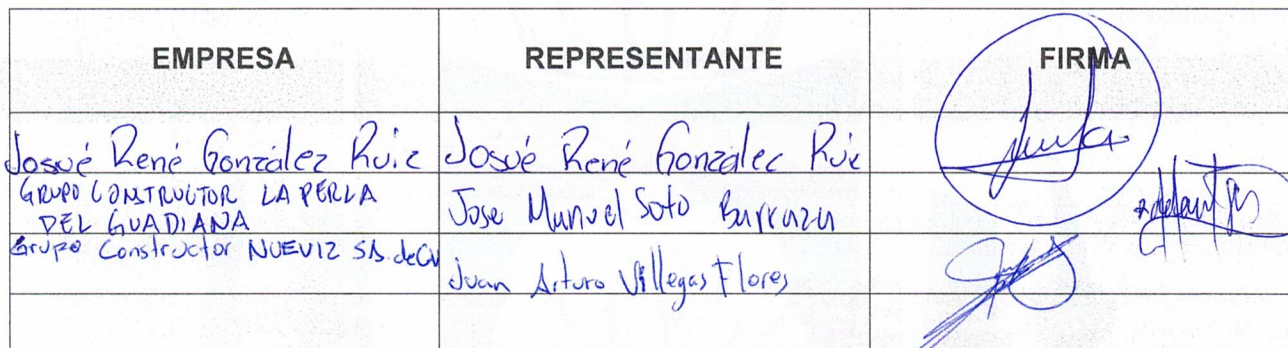 EMPRESA REPRESENTANTE FIRMA
Josué René González Ruiz Josué René González Ruiz
GRUPO CONSTRUCTOR LA PERLA
DEL GUADIANA Jose Manuel Soto Barraza
Grupo Constructor NUEVIZ SA. de CV
Juan Arturo Villegas Flores